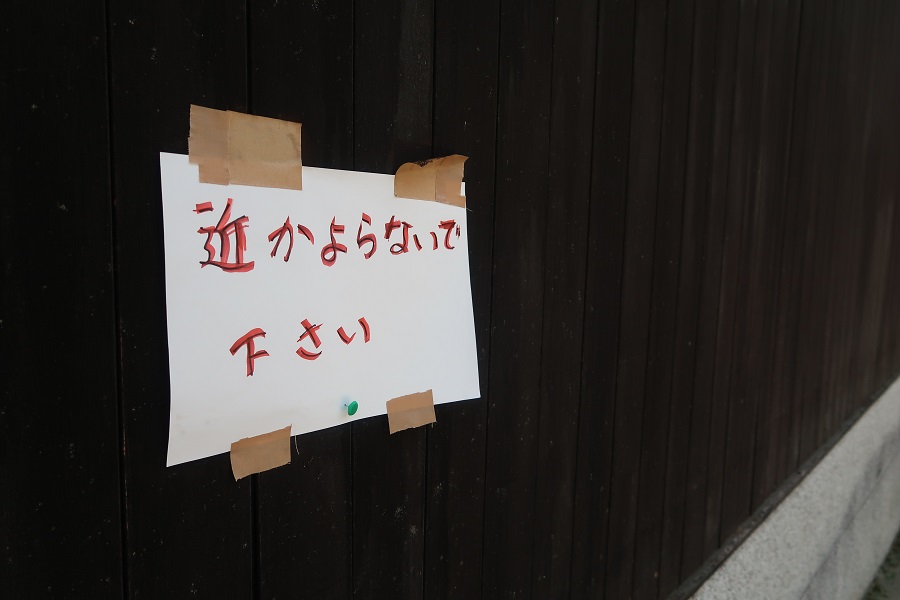 近かよらないで
下さい